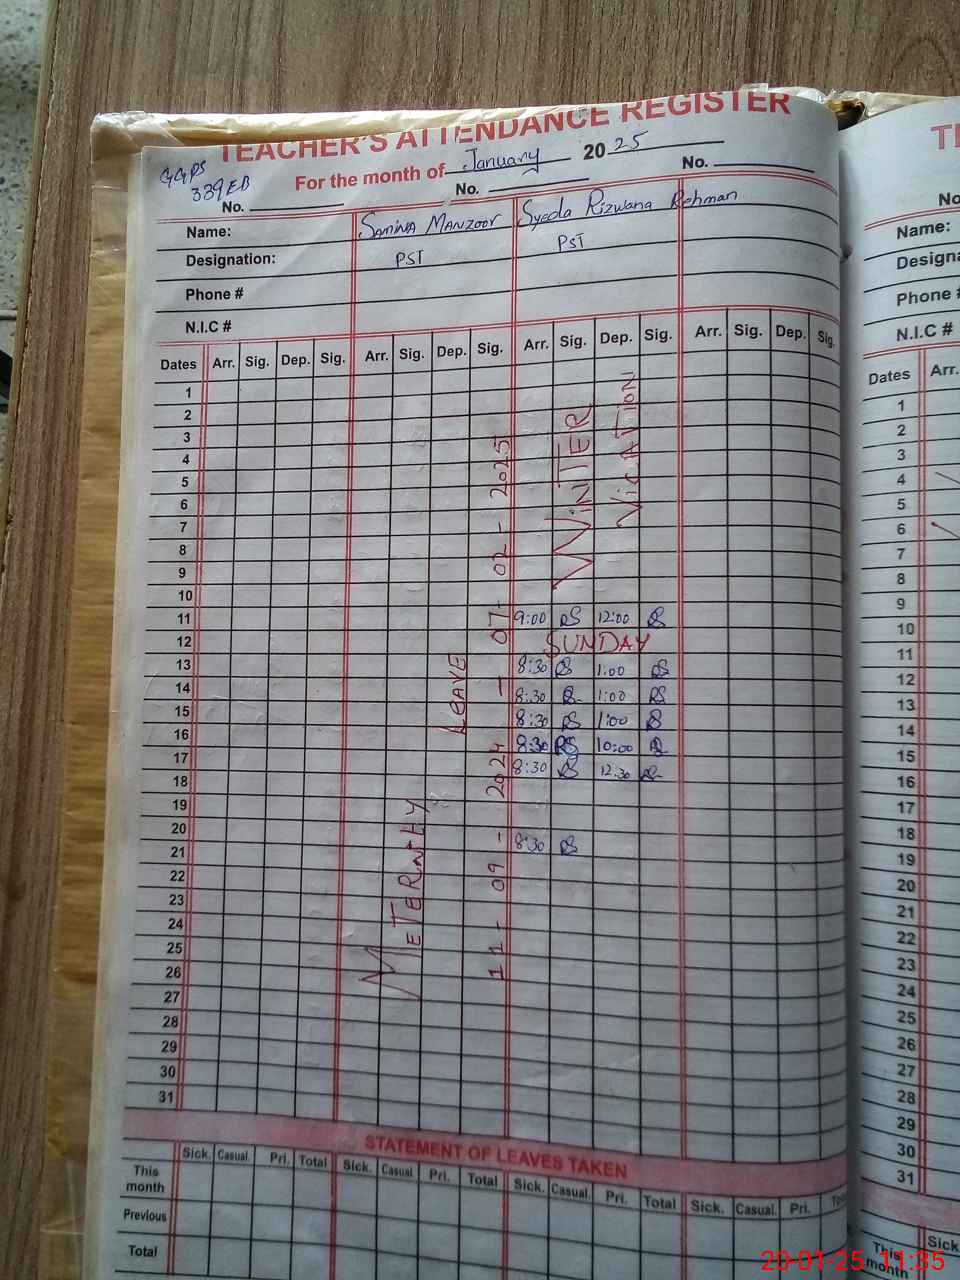 TEACHER'S ATTENDANCE REGISTER
GGPS
339EB
For the month of January 2025
No. No. No.
Name: Samina Manzoor Syeda Rizwana Rehman
Designation: PST PST
Phone #
N.I.C #
Dates Arr. Sig. Dep. Sig. Arr. Sig. Dep. Sig. Arr. Sig. Dep. Sig. Arr. Sig. Dep. Sig.
1
2
3
4
5
6
7
8
9
10
11 9:00 RS 12:00 RS
12 SUNDAY
13 8:30 RS 1:00 RS
14 8:30 RS 1:00 RS
15 8:30 RS 1:00 RS
16 8:30 RS 10:00 RS
17 8:30 RS 12:30 RS
18
19
20 8:30 RS
21
22
23
24
25
26
27
28
29
30
31
METERNTHY
LEAVE
11-09-2024 — 07-02-2025
WINTER
VICATION
STATEMENT OF LEAVES TAKEN
Sick. Casual. Pri. Total Sick. Casual. Pri. Total Sick. Casual. Pri. Total Sick. Casual. Pri.
This month
Previous
Total
No
Name:
N.I.C #
Phone #
Dates Arr.
1
2
3
4
5
6
7
8
9
10
11
12
13
14
15
16
17
18
19
20
21
22
23
24
25
26
27
28
29
30
31
Sick
This month
20-01-25 11:35